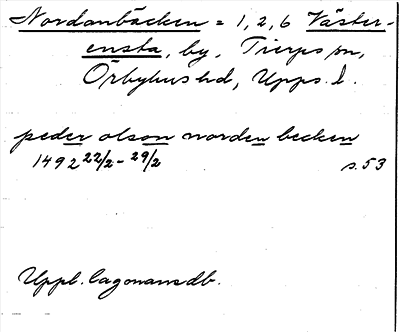 Nordanbäcken = 1, 2, 6 Väster-
ensta, by, Tierps sn,
Örbyhus hd, Upps. l.
peder olson norden becken
1492 22/2 - 29/2 s. 53
Uppl. lagmansdb.